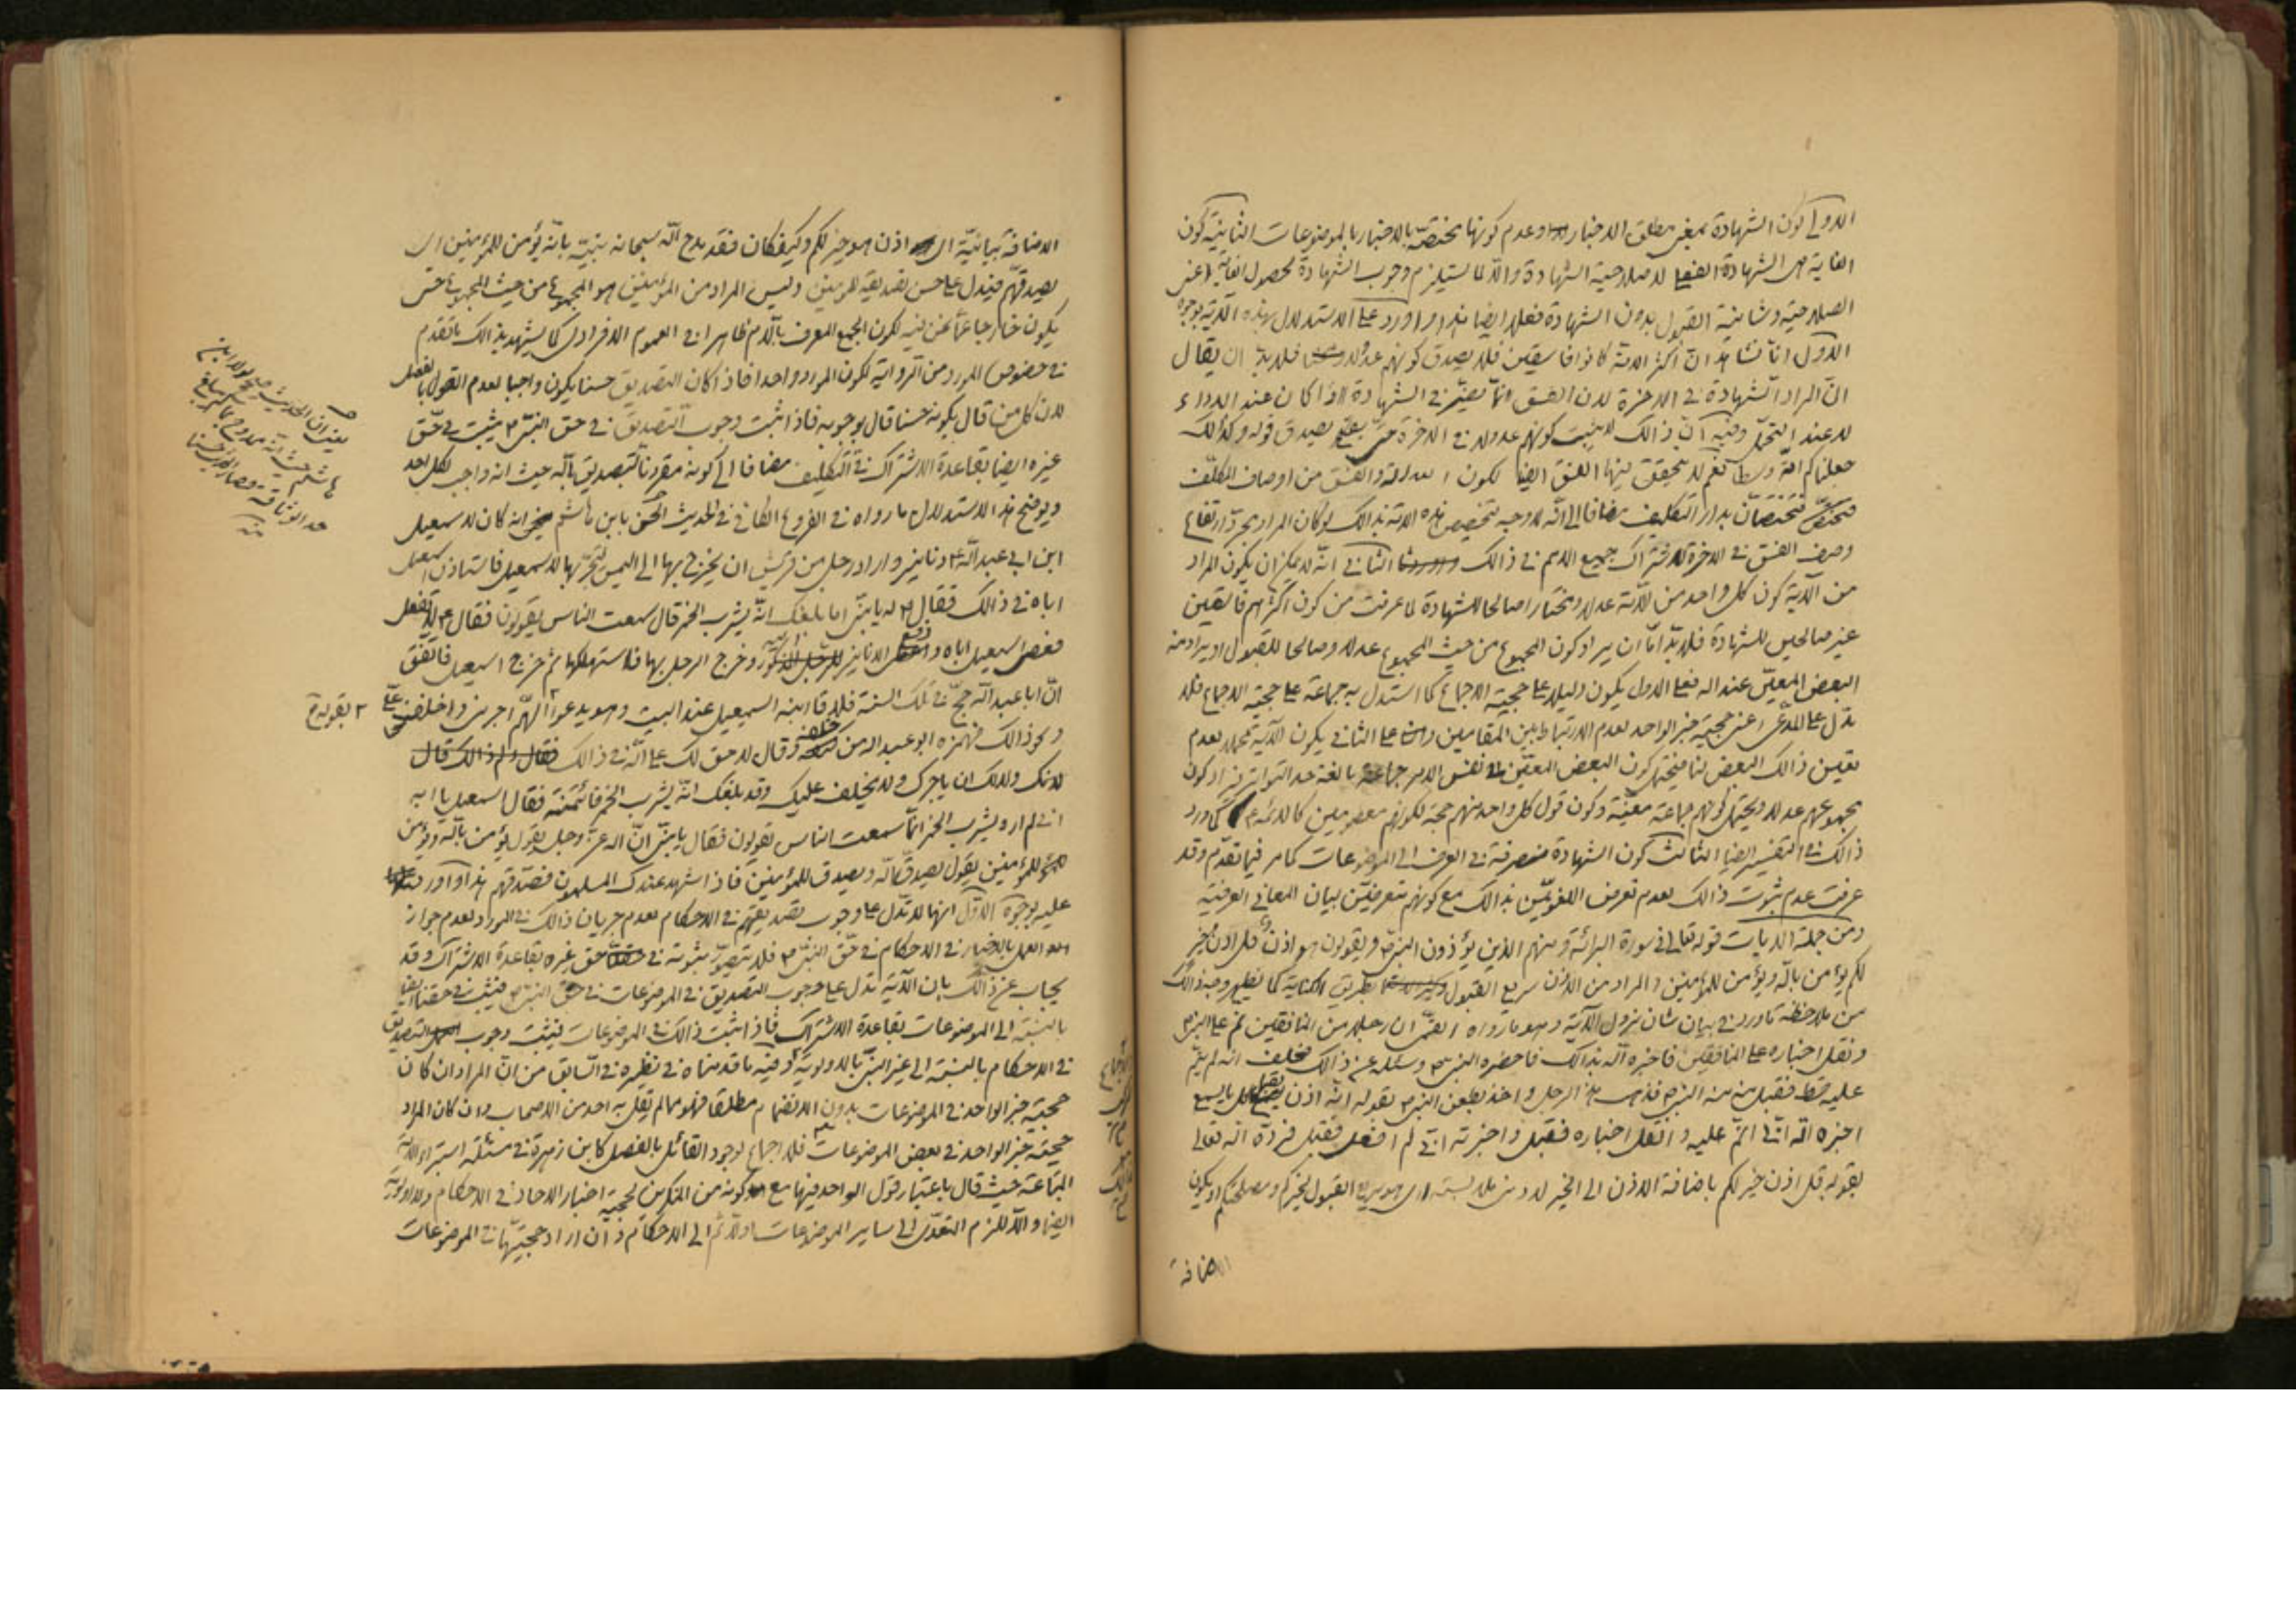 الاولى كون الشهادة بمعنى مطلق الاخبار وعدم كونها مختصة بالاخبار بالموضوعات الثانية كون
الغاية هى الشهادة الفعلية لا صلاحية الشهادة والا لما يستلزم وجوب الشهادة لحصول الغاية اعنى
الصلاحية وشانية القبول بدون الشهادة فعلا ايضا هذا واورد على الاستدلال بهذه الآية بوجوه
الاول انا نشاهد ان اكثر الامة كانوا فاسقين فلا يصدق كونهم عدولا فلا بد ان يقال
ان المراد الشهادة فى الاخرة لان الفسق انما يضر فى الشهادة اذا كان عند الاداء
لا عند التحمل وفيه ان ذالك لا يثبت كونهم عدولا فى الاخرة حتى يصدق قوله وكذالك
جعلناكم امة وسطا نعم لا يتحقق فيها الفسق ايضا لكون العدالة والفسق من اوصاف المكلف
فتختصان بدار التكليف مضافا الى انه لا وجه لتخصيص هذه الامة بذالك لو كان المراد مجرد ارتفاع
وصف الفسق فى الاخرة لاشتراك جميع الامم فى ذالك الثانى انه لا يمكن ان يكون المراد
من الآية كون كل واحد من الامة عدلا ومختارا صالحا للشهادة لما عرفت من كون اكثرهم فاسقين
غير صالحين للشهادة فلا بد اما ان يراد كون المجموع من حيث المجموع عدلا وصالحا للقبول او يراد منه
البعض المعين عند الله فعلى الاول يكون دليلا على حجية الاجماع كما استدل به جماعة على حجية الاجماع فلا
تدل على المدعى اعنى حجية خبر الواحد لعدم الارتباط بين المقامين وعلى الثانى يكون الآية مجملا لعدم
تعيين ذالك البعض لنا فيحتمل كون البعض المعين فى نفس الامر جماعة بالغة حد التواتر فيراد كون
مجموعهم عدلا ويحتمل كونهم جماعة معينة وكون قول كل واحد منهم حجة لكونهم معصومين كالائمة ع كما ورد
ذالك فى التفسير ايضا الثالث كون الشهادة منصرفة فى العرف الى الموضوعات كما مر فيما تقدم وقد
عرفت عدم ثبوت ذالك لعدم تعرض اللغويين بذالك مع كونهم متعرضين لبيان المعانى العرفية
ومن جملة الايات قوله تعالى فى سورة البرائة ومنهم الذين يؤذون النبى ويقولون هو اذن قل اذن خير
لكم يؤمن بالله ويؤمن للمؤمنين والمراد من الاذن سريع القبول بطريق الكناية كما يظهر وجه ذالك
من ملاحظة ما ورد فى بيان شان نزول الآية وهو ما رواه القمى ان رجلا من المنافقين نم على النبى ص
ونقل اخباره على المنافقين فاخبره الله بذالك فاحضره النبى ص وسئله عن ذالك فحلف انه لم ينم
عليه قط فقبل منه النبى ص فذهب هذا الرجل واخذ يطعن النبى ص بقوله انه اذن يقبل كل ما يسمع
اخبره الله انى انم عليه وانقل اخباره فقبل واخبرته انى لم افعل فقبل فرده الله تعالى
بقوله قل اذن خير لكم باضافة الاذن الى الخير اى هو سريع القبول لخيركم ومصلحتكم او يكون
الاضافة
الاضافة بيانية اى اذن هو خير لكم وكيف كان فقد مدح الله سبحانه نبيه بانه يؤمن للمؤمنين اى
يصدقهم فيدل على حسن تصديقه للمؤمنين وليس المراد من المؤمنين هو المجموع من حيث المجموع حتى
يكون خارجا عما نحن فيه لكون الجمع المعرف باللام ظاهرا فى العموم الافرادى كما يشهد بذالك ما تقدم
فى خصوص المورد من الرواية لكون المورد واحدا فاذا كان التصديق حسنا يكون واجبا لعدم القول بالفصل
لان كل من قال بكونه حسنا قال بوجوبه فاذا ثبت وجوب التصديق فى حق النبى ص يثبت فى حق
غيره ايضا بقاعدة الاشتراك فى التكليف مضافا الى كونه مقرونا بتصديق بالله حيث انه واجب لكل احد
ويوضح هذا الاستدلال ما رواه فى الفروع الكافى فى الحديث الحسن بابن هاشم انه كان لاسمعيل
ابن ابى عبد الله ع دنانير واراد رجل من قريش ان يخرج بها الى اليمن ليتجر بها لاسمعيل فاستاذن اسمعيل
اباه فى ذالك فقال ع له يا بنى اما بلغك انه يشرب الخمر قال سمعت الناس يقولون فقال ع لا تفعل
فعصى اسمعيل اباه ودفع الدنانير اليه وخرج الرجل بها فاستهلكها ثم خرج اسمعيل فاتفق
ان ابا عبد الله حج فى تلك السنة فلاقا ابنه اسمعيل عند البيت وهو يدعو اللهم اجرنى واخلف على
ونحو ذالك فهمزه ابو عبد الله من خلفه وقال لا حق لك على الله فى ذالك
لانك ولا لك ان ياجرك ولا يخلف عليك وقد بلغك انه يشرب الخمر فائتمنته فقال اسمعيل يا ابه
انى لم اره يشرب الخمر انما سمعت الناس يقولون فقال يا بنى ان الله عز وجل يقول يؤمن بالله ويؤمن
للمؤمنين يقول يصدق الله ويصدق للمؤمنين فاذا شهد عندك المسلمون فصدقهم هذا واورد
عليه بوجوه الاول انها لا تدل على وجوب تصديقهم فى الاحكام لعدم جريان ذالك فى المورد لعدم جواز
العمل بالاخبار فى الاحكام فى حق النبى ص فلا يتصور ثبوته فى حق غيره بقاعدة الاشتراك وقد
يجاب عن ذالك بان الآية تدل على وجوب التصديق فى الموضوعات فى حق النبى ص فيثبت فى حقنا ايضا
بالنسبة الى الموضوعات بقاعدة الاشتراك فاذا ثبت ذالك فى الموضوعات فيثبت وجوب التصديق
فى الاحكام بالنسبة الى غير النبى بالاولوية وفيه ما قدمناه فى نظيره فى السابق من ان المراد ان كان
حجية خبر الواحد فى الموضوعات بدون الانضمام مطلقا فهو مما لم يقل به احد من الاصحاب وان كان المراد
حجية خبر الواحد فى بعض الموضوعات فلا اجماع لوجود القائل بالفصل كابن زهرة فى مسئلة استبراء الامة
المبتاعة حيث قال باعتبار قول الواحد فيها مع كونه من المنكرين لحجية اخبار الاحاد فى الاحكام ولا اولوية
ايضا والا للزم التعدى الى ساير الموضوعات اولا ثم الى الاحكام وان اراد حجيتها فى الموضوعات
بقوله